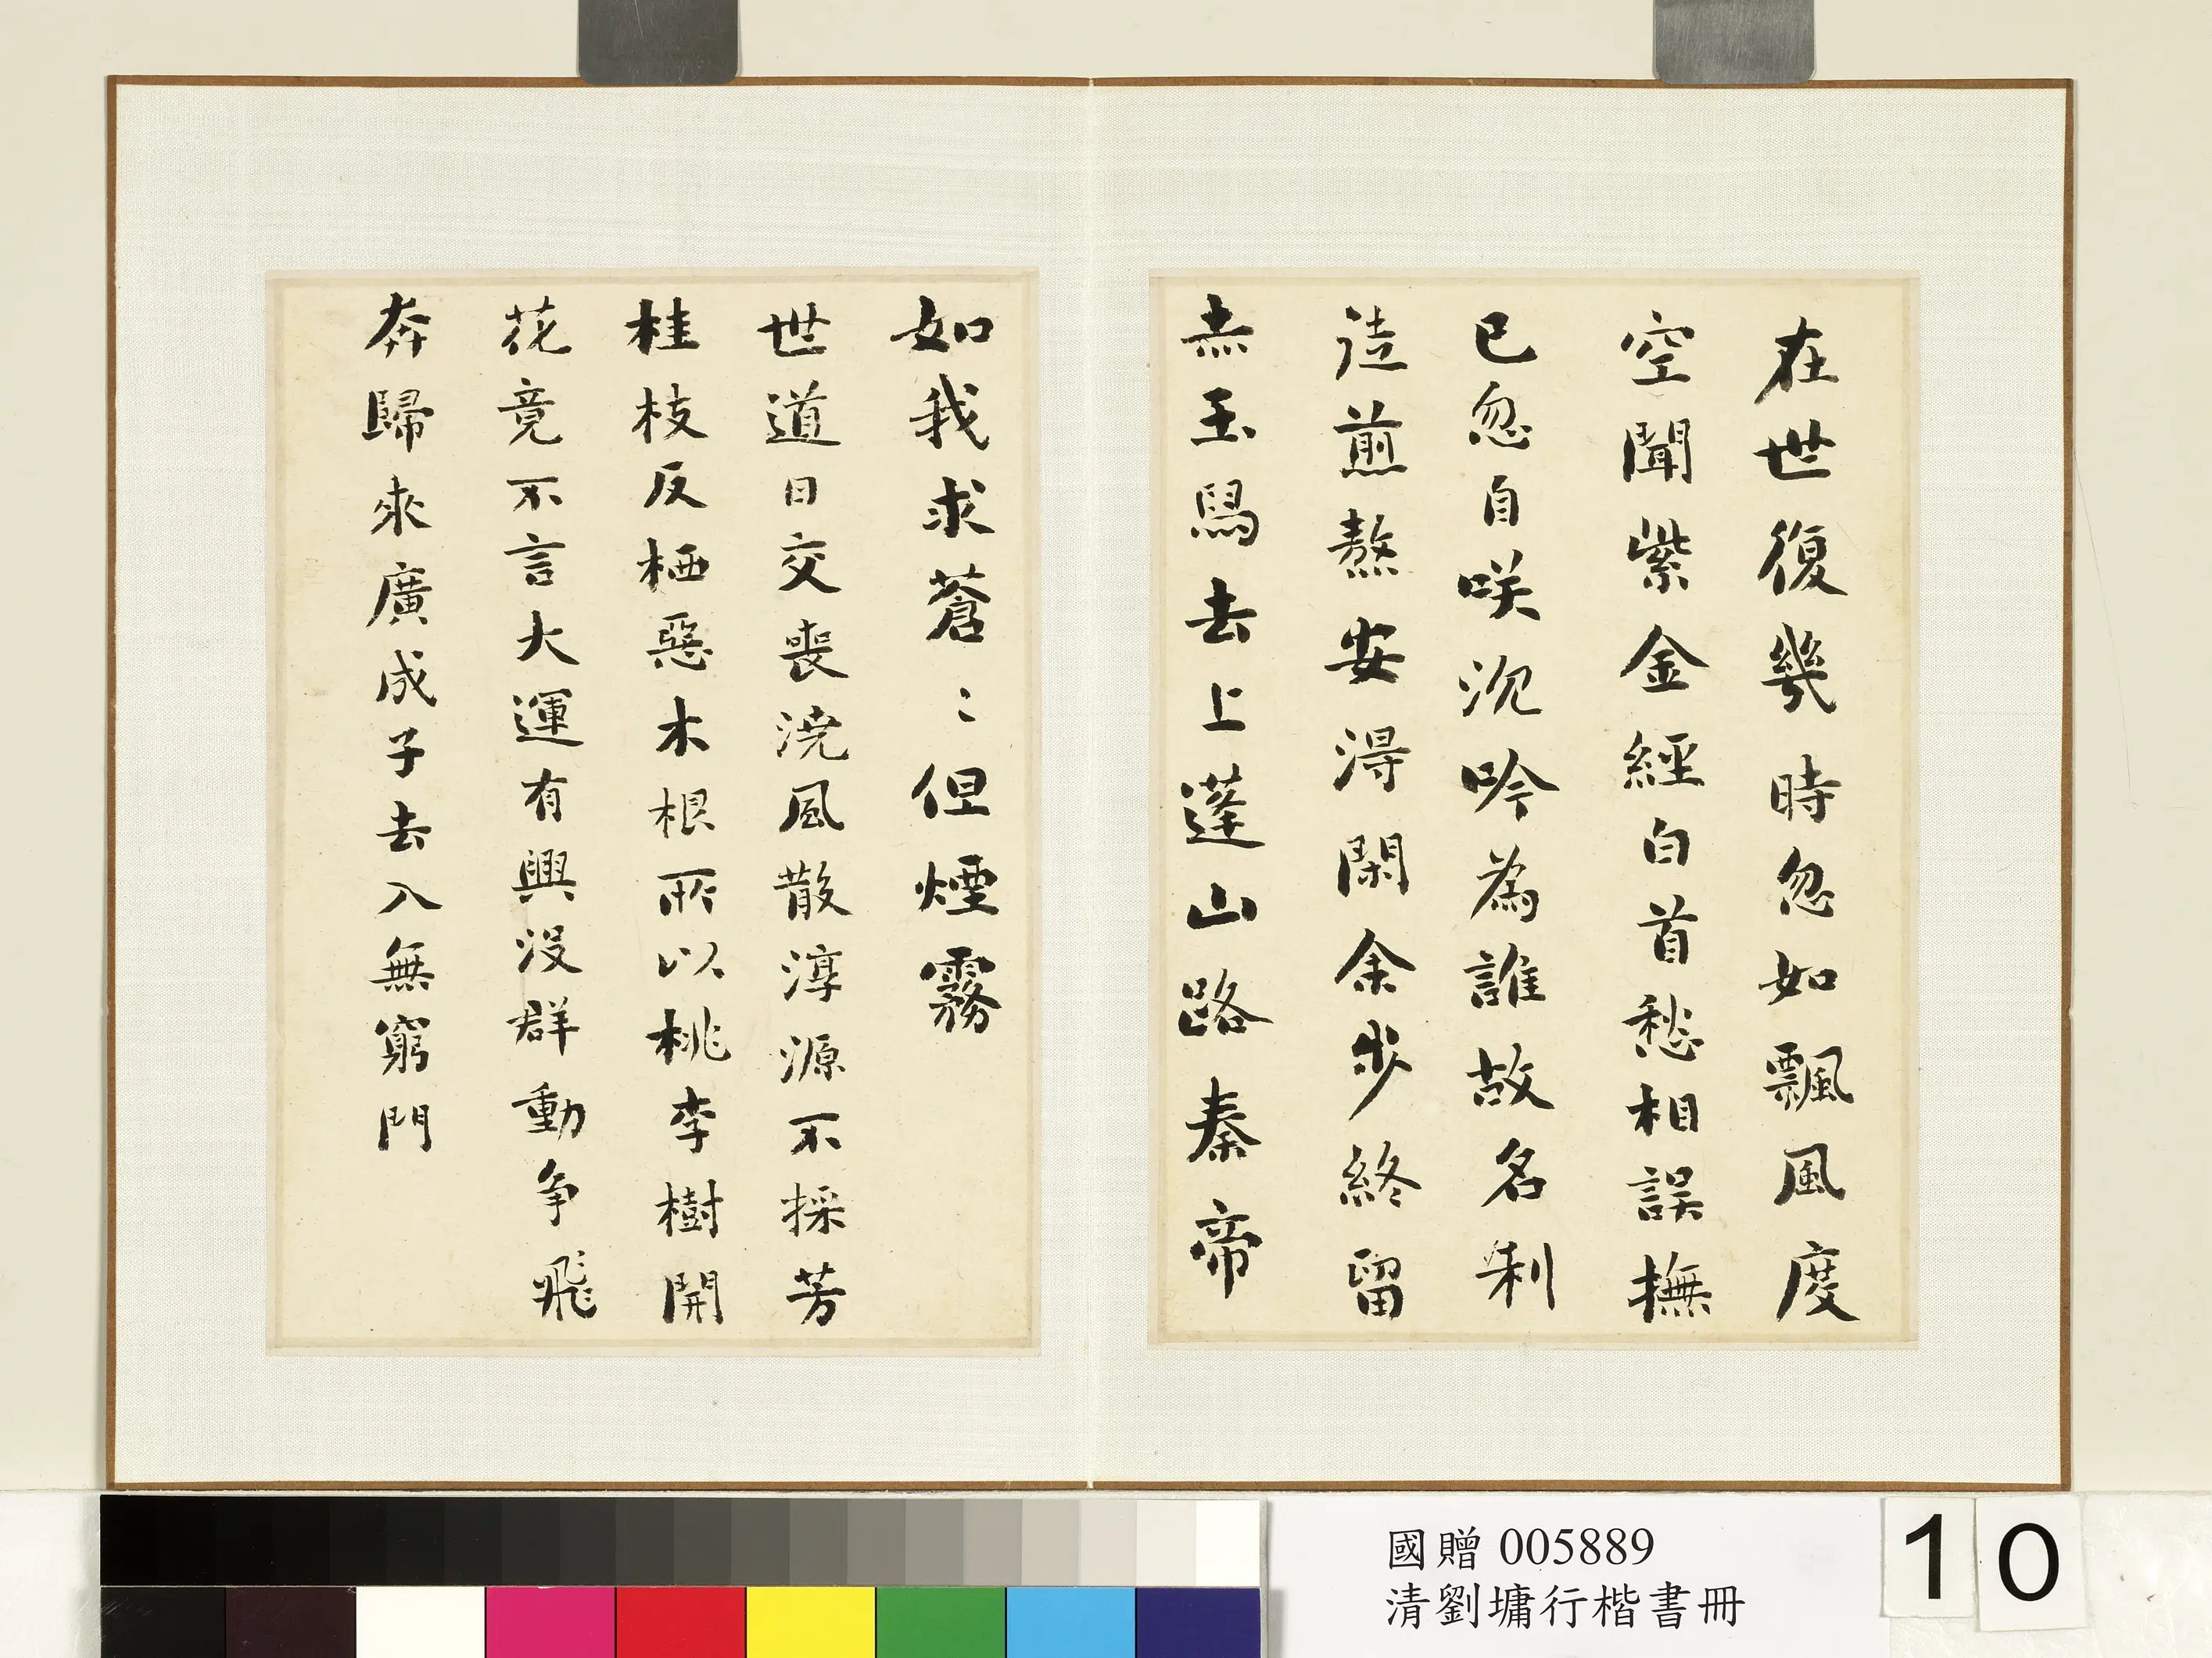 在世復幾時忽如飄風度
空聞紫金經白首愁相誤撫
已忽自咲沉吟為誰故名利
徒煎熬安得閑余步終留
赤玉舄去上蓬山路秦帝
如我求蒼〻但煙霧
世道日交喪澆風散淳源不採芳
桂枝反栖惡木根所以桃李樹開
花竟不言大運有興沒群動爭飛
奔歸來廣成子去入無窮門
國贈 005889
清劉墉行楷書冊
10